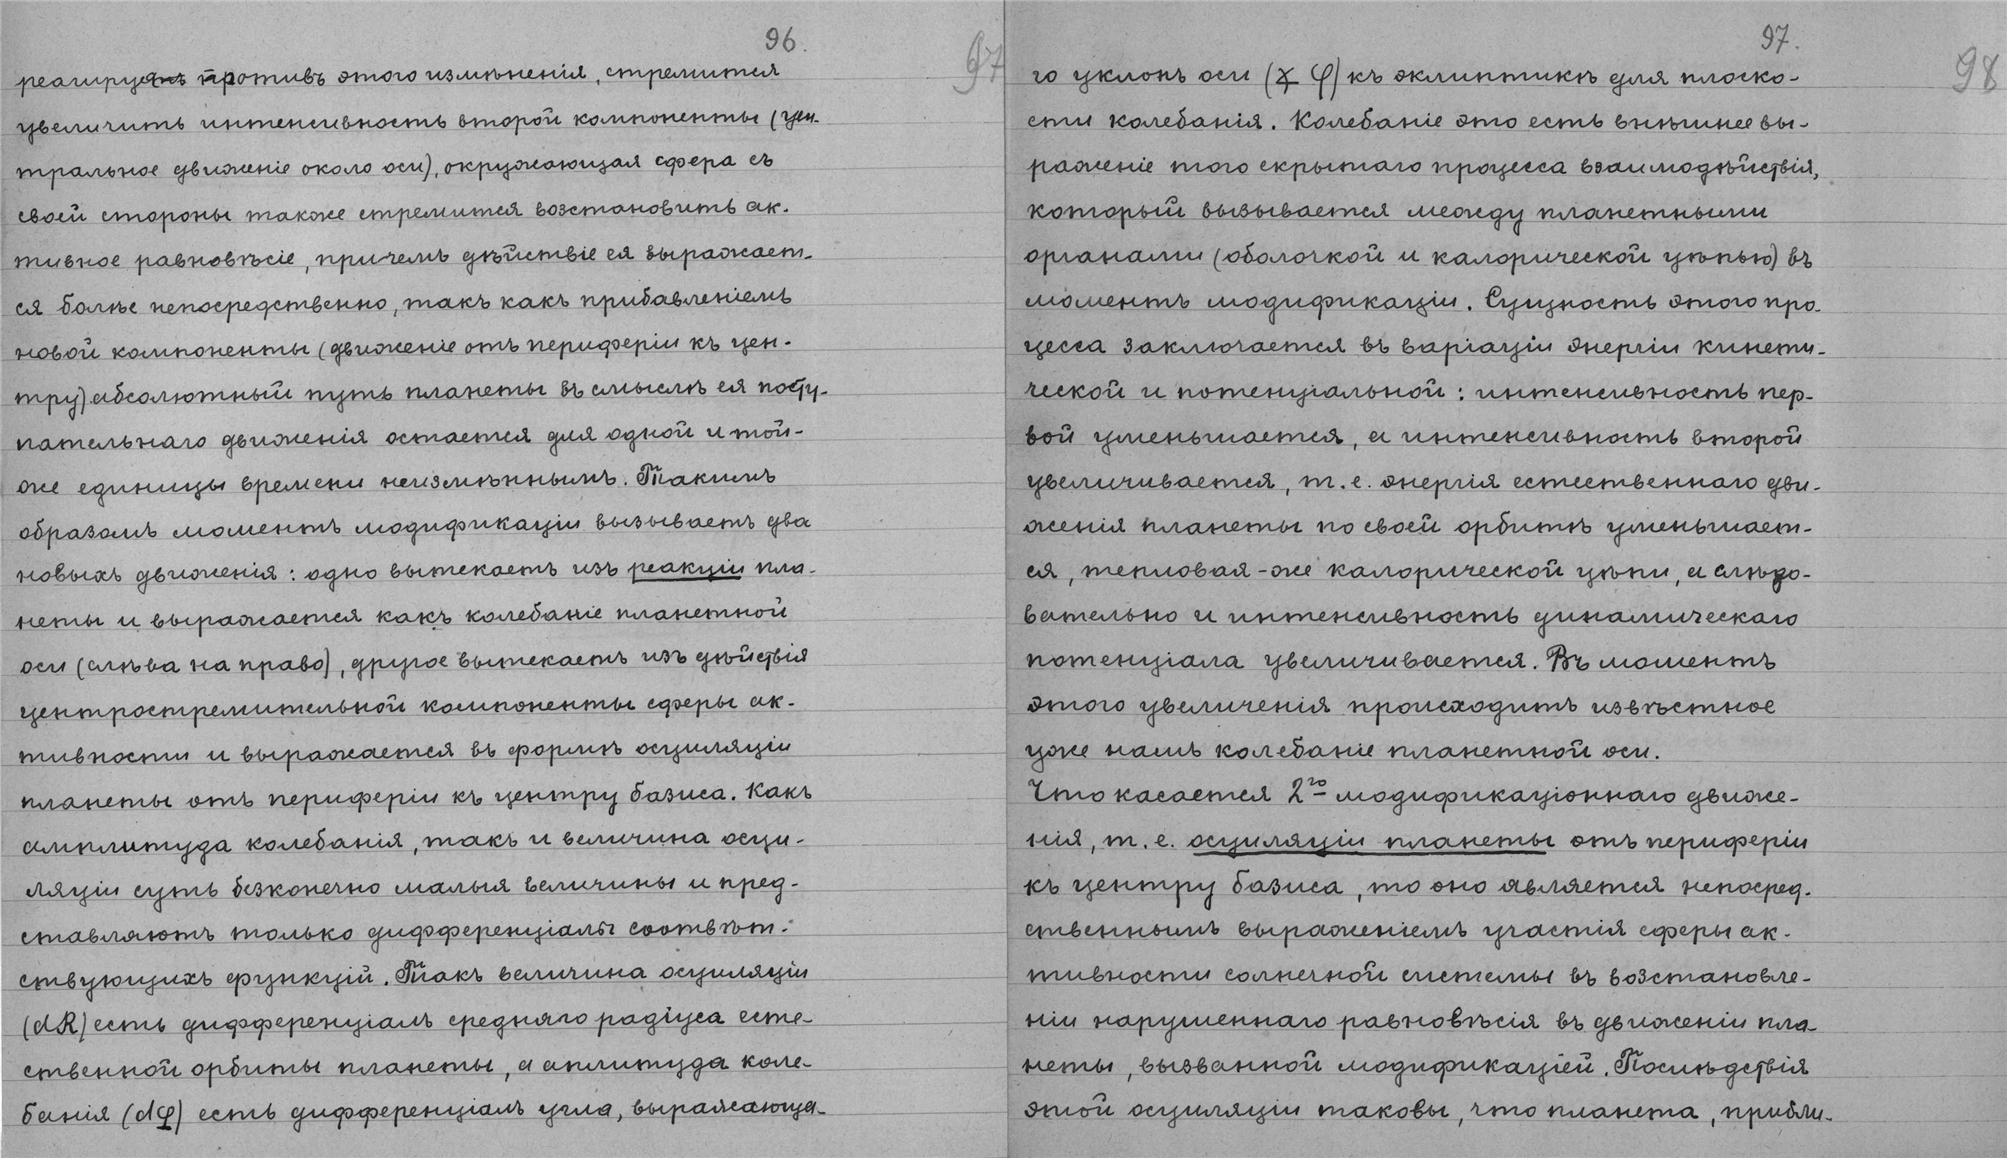 96.
97
реагируя противъ этого измѣненія, стремится
увеличить интенсивность второй компоненты (цен-
тральное движеніе около оси), окружающая сфера съ
своей стороны также стремится возстановить ак-
тивное равновѣсіе, причемъ дѣйствіе ея выражает-
ся болѣе непосредственно, такъ какъ прибавленіемъ
новой компоненты (движеніе отъ периферіи къ цен-
тру) абсолютный путь планеты въ смыслѣ ея посту-
пательнаго движенія остается для одной и той-
же единицы времени неизмѣннымъ. Такимъ
образомъ моментъ модификаціи вызываетъ два
новыхъ движенія: одно вытекаетъ изъ реакціи пла-
неты и выражается какъ колебаніе планетной
оси (слѣва на право), другое вытекаетъ изъ дѣйствія
центростремительной компоненты сферы ак-
тивности и выражается въ формѣ осциляціи
планеты отъ периферіи къ центру базиса. Какъ
амплитуда колебанія, такъ и величина осци-
ляціи суть безконечно малыя величины и пред-
ставляютъ только дифференціалы соотвѣт-
ствующихъ функцій. Такъ величина осциляціи
(dR) есть дифференціалъ средняго радіуса есте-
ственной орбиты планеты, а аплитуда коле-
банія (dφ) есть дифференціалъ угла, выражающа-
97.
98
го уклонъ оси (∡ φ) къ эклиптикѣ для плоско-
сти колебанія. Колебаніе это есть внѣшнее вы-
раженіе того скрытаго процесса взаимодѣйствія,
который вызывается между планетными
органами (оболочкой и калорической цѣпью) въ
моментъ модификаціи. Сущность этого про-
цесса заключается въ варіаціи энергіи кинети-
ческой и потенціальной: интенсивность пер-
вой уменьшается, а интенсивность второй
увеличивается, т. е. энергія естественнаго дви-
женія планеты по своей орбитѣ уменьшает-
ся, тепловая-же калорической цѣпи, а слѣдо-
вательно и интенсивность динамическаго
потенціала увеличивается. Въ моментъ
этого увеличенія происходитъ извѣстное
уже намъ колебаніе планетной оси.
Что касается 2го модификаціоннаго движе-
нія, т. е. осциляціи планеты отъ периферіи
къ центру базиса, то оно является непосред-
ственнымъ выраженіемъ участія сферы ак-
тивности солнечной системы въ возстановле-
ніи нарушеннаго равновѣсія въ движеніи пла-
неты, вызванной модификаціей. Послѣдствія
этой осциляціи таковы, что планета, прибли-